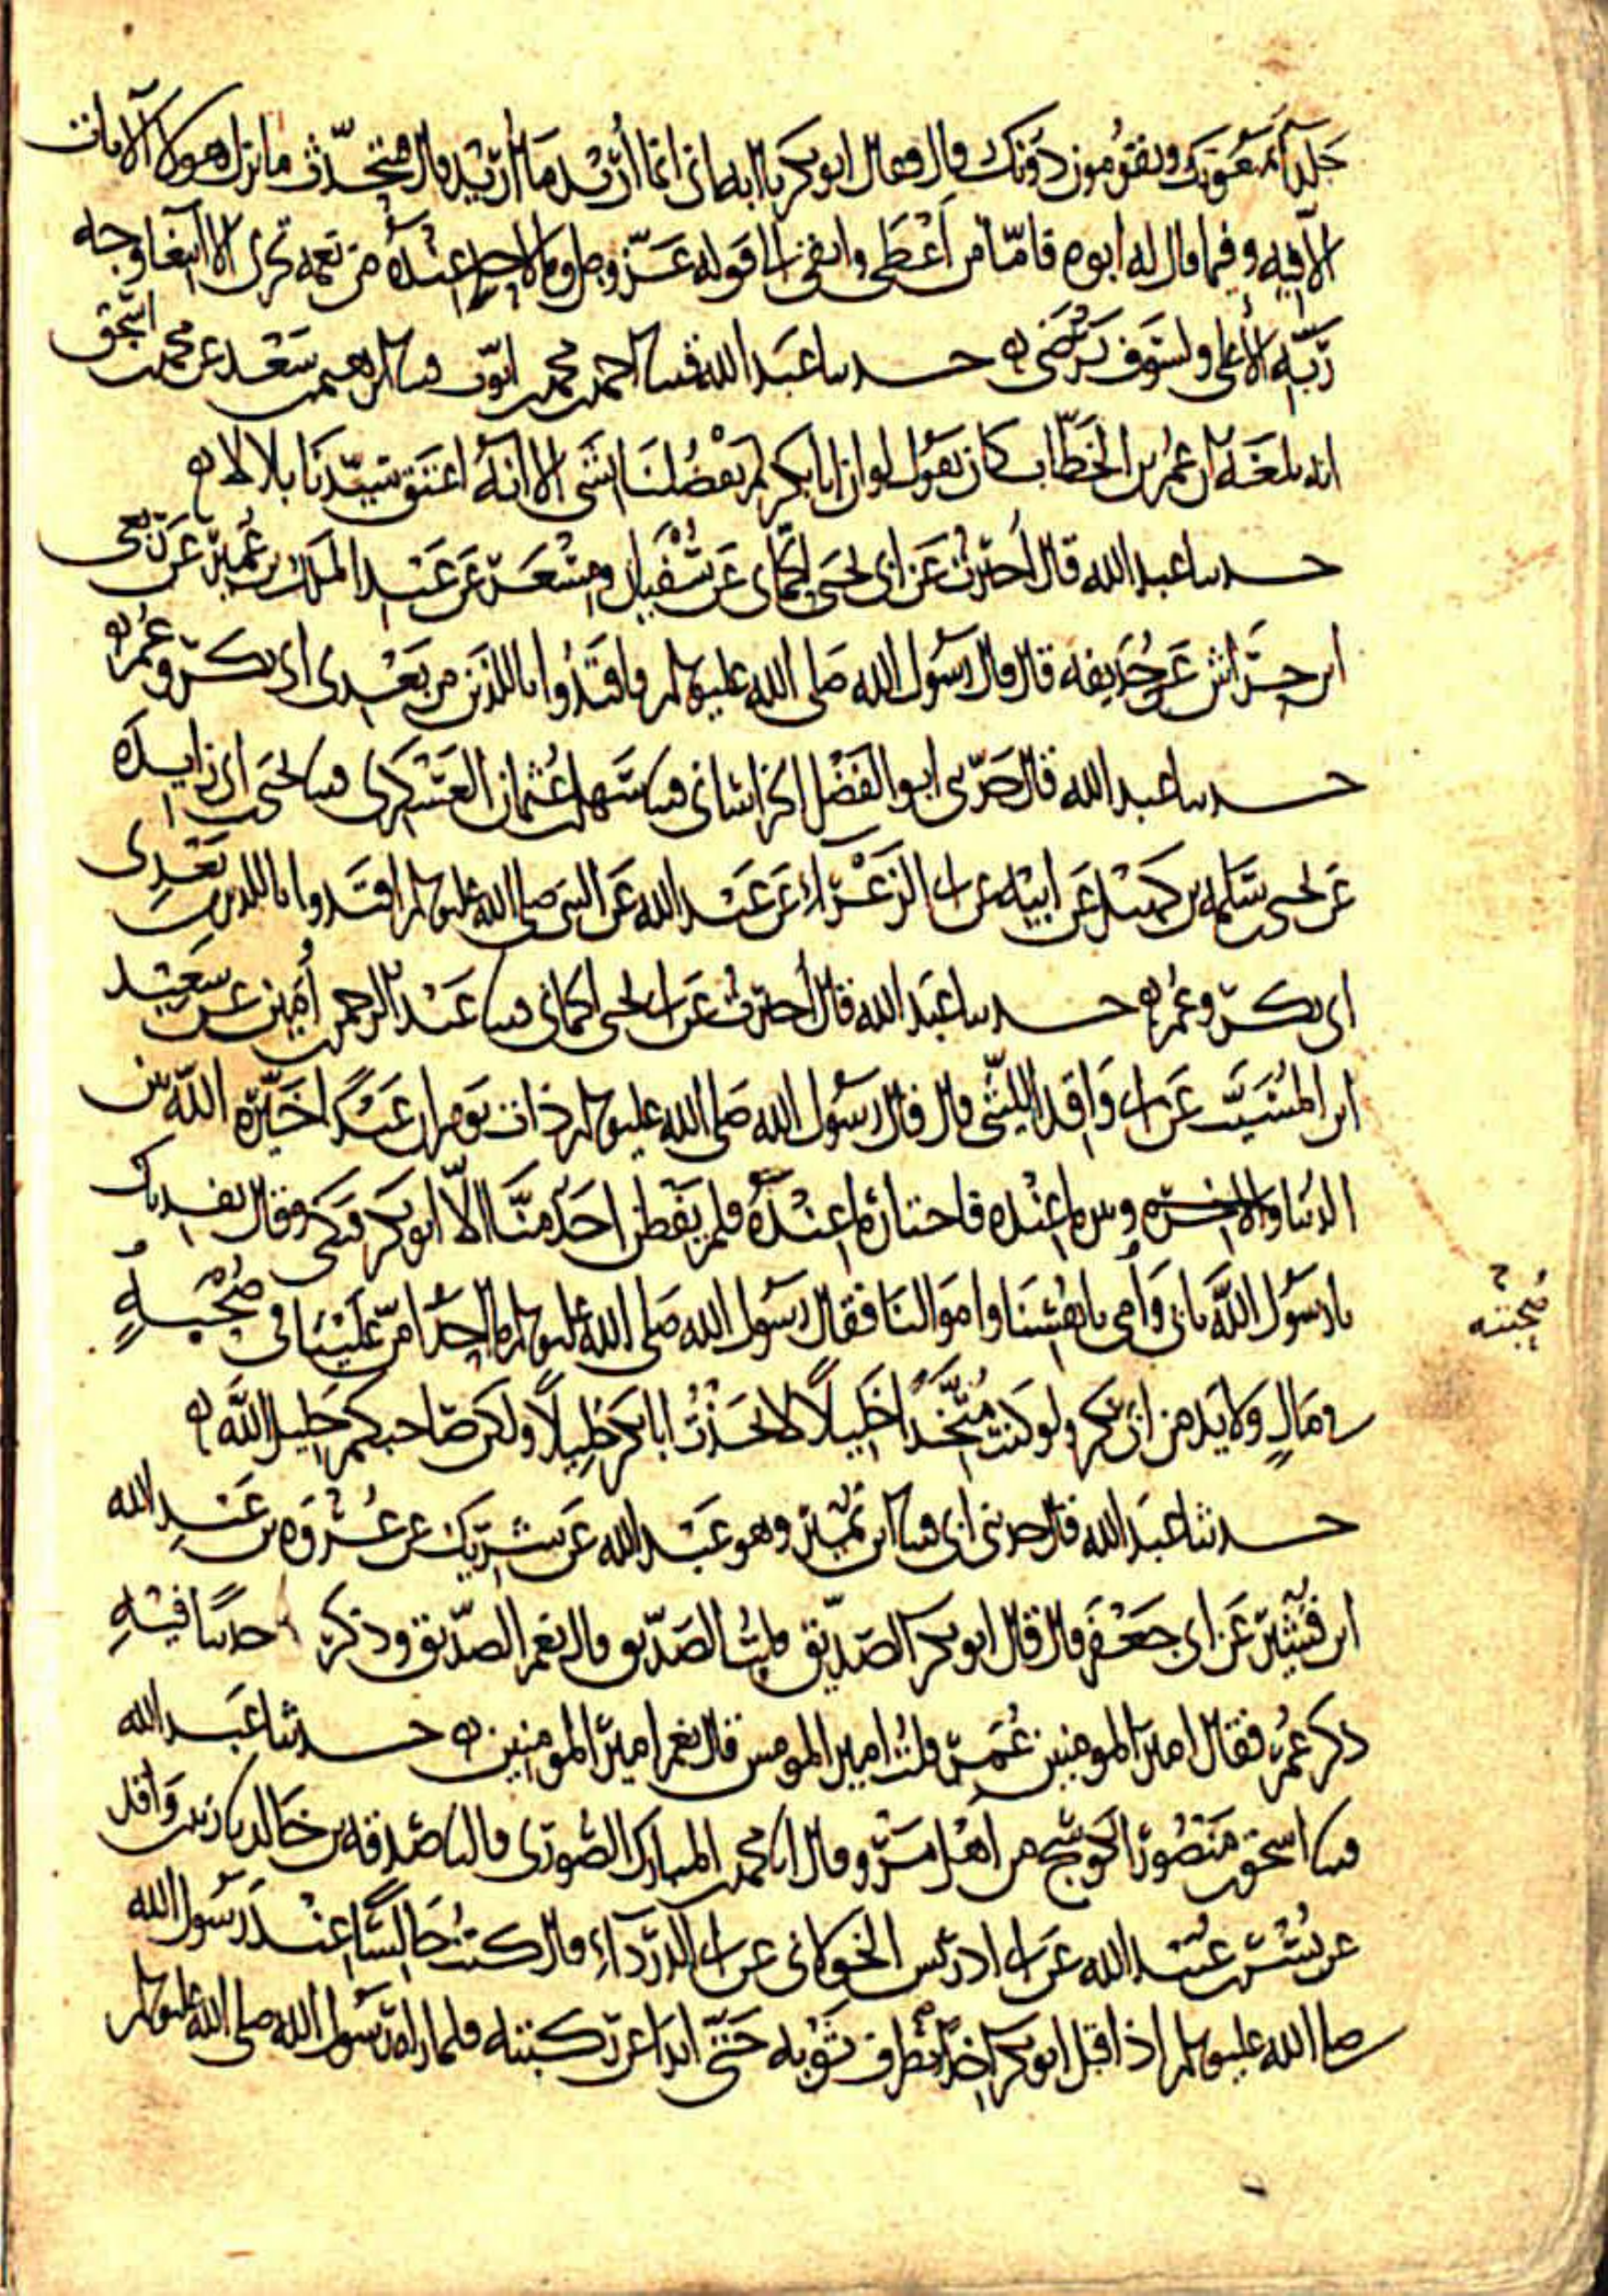 جلدا يمنعونك ويقومون دونك قال فقال ابو بكر يا ابه اني انما أريد ما أريد قال فيتحدث ما نزل هولا الايات
الا فيه وفيما قال له ابوه فامّا من أعطى واتقى الى قوله عز وجل وما لاحد عنده من نعمه تجزى الا ابتغا وجه
ربّه الأعلى ولسوف يرضى ه حدثنا عبد الله قثنا احمد بن محمد بن ايوب قثنا ابرهيم بن سعد عن محمد بن اسحق
انه بلغه ان عمر بن الخطاب كان يقول لو ان ابا بكر لم يفضلنا بشي الا انه اعتق سيدنا بلالا ه
حدثنا عبد الله قال أخبرت عن ابي يحيى الحماني عن سفيان ومسعر عن عبد الملك بن عمير عن ربعي
ابن حراش عن حذيفه قال قال رسول الله صلى الله عليه وسلم فاقتدوا باللذين من بعدي ابي بكر وعمر ه
حدثنا عبد الله قال حدثني ابو الفضل الخراساني قثنا سهل بن عثمان العسكري قثنا يحيى بن ابي زايدة
عن يحيى بن سلمه بن كهيل عن ابيه عن ابي الزعراء عن عبد الله عن النبي صلى الله عليه وسلم اقتدوا باللذين من بعدي
ابي بكر وعمر ه حدثنا عبد الله قال أخبرت عن ابي يحيى الحماني قثنا عبد الرحمن بن أمين عن سعيد
ابن المسيب عن ابي واقد الليثي قال قال رسول الله صلى الله عليه وسلم ذات يوم ان عبدا خيره الله بين
الدنيا والاخره وبين ما عنده فاختار ما عنده فلم يفطن احد منا الا ابو بكر فبكى وقال نفديك
يا رسول الله بابي وأمي بانفسنا واموالنا فقال رسول الله صلى الله عليه وسلم ما احد امن علينا في صحبه
صحبته
وماله ولا يد من ابي بكر ولو كنت متخذا خليلا لاتخذت ابا بكر خليلا ولكن صاحبكم خليل الله ه
حدثنا عبد الله قال حدثني ابي قثنا ابن نمير وهو عبد الله عن شريك عن عروه بن عبد الله
ابن قشير عن ابي جعفر قال قال ابو بكر الصديق قلت الصديق قال نعم الصديق وذكر حديثا فيه
ذكر عمر فقال امير المومنين عمر قلت امير المومنين قال نعم امير المومنين ه حدثنا عبد الله
قثنا اسحق بن منصور الكوسج من اهل مرو وقال انا محمد بن المبارك الصوري قال نا صدقه بن خالد نا زيد بن واقد
عن بسر بن عبيد الله عن ابي ادريس الخولاني عن ابي الدرداء قال كنت جالسا عند رسول الله
صلى الله عليه وسلم اذ اقبل ابو بكر اخذا بطرف ثوبه حتى ابدا عن ركبتيه فلما راه رسول الله صلى الله عليه وسلم